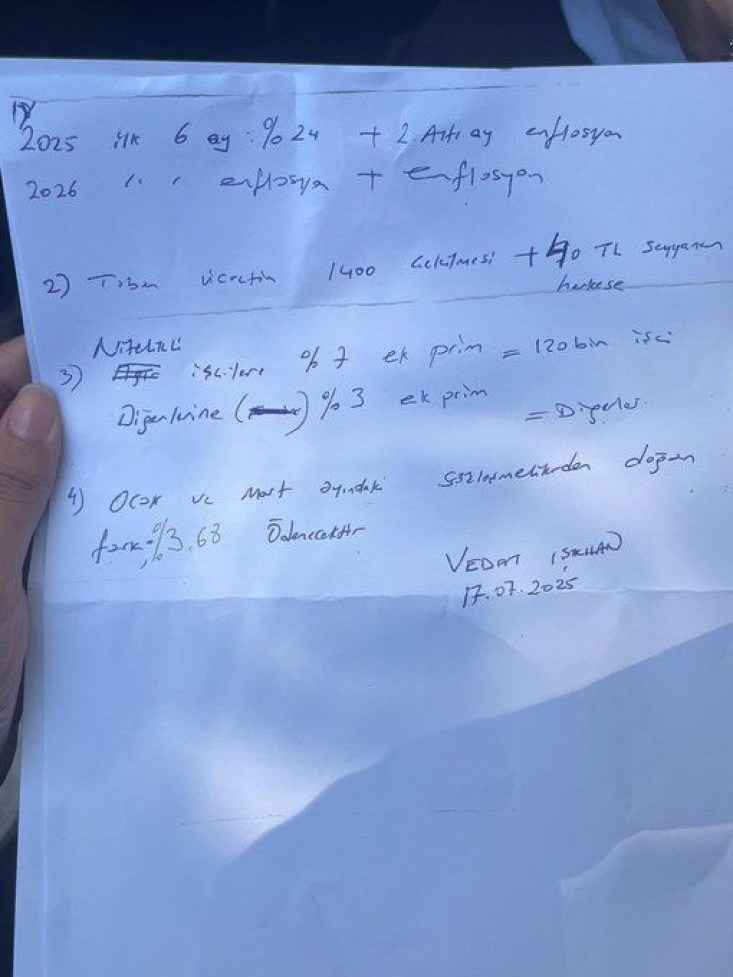 1)
2025 ilk 6 ay : % 24 + 2. Altı ay enflosyon
2026 " " enflosyon + enflosyon
2) Taban ücretin 1400 çekilmesi + 40 TL seyyanen
herkese
Nitelikli
3) işçilere % 7 ek prim = 120 bin işçi
Diğerlerine ( ) % 3 ek prim = Diğerler.
4) Ocak ve Mart ayındaki sözleşmelilerden doğan
fark % 3,68 Ödenecektir
VEDAT IŞIKHAN
17.07.2025